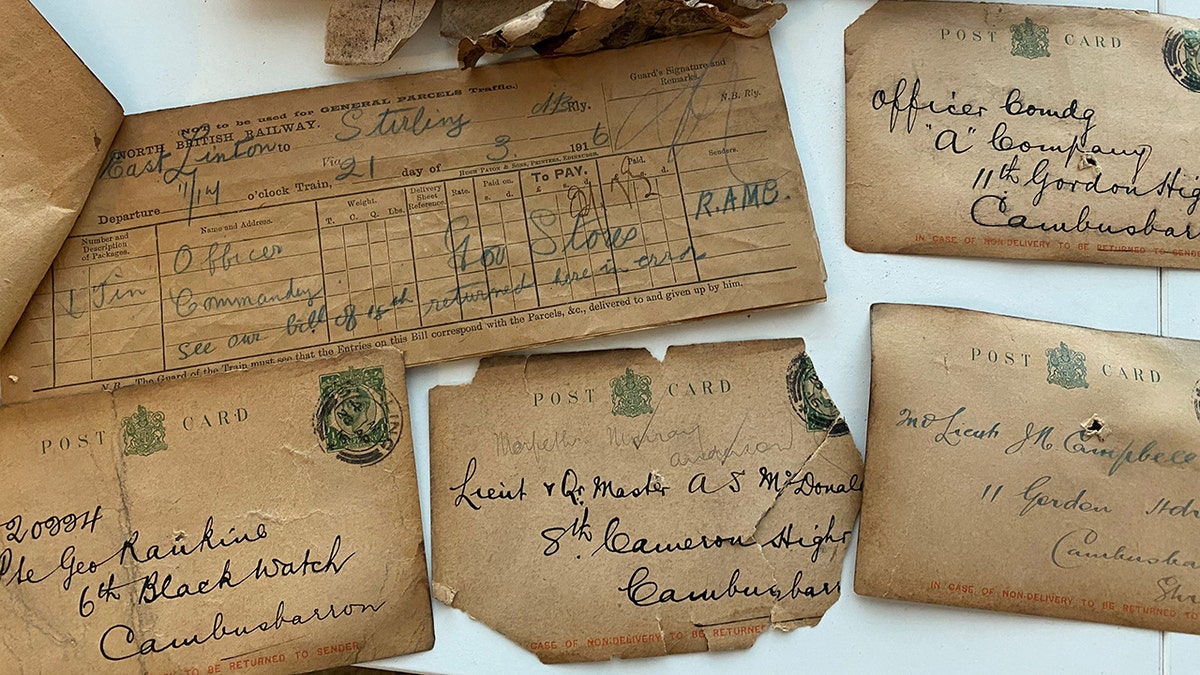 NOT to be used for GENERAL PARCELS Traffic.)
NORTH BRITISH RAILWAY.
East Linton to Stirling Rly.
Via
21 day of 3 1916
11/14 o'clock Train,
HUGH PATON & SONS, PRINTERS, EDINBURGH.
Departure
Guard's Signature and
Remarks.
N.B. Rly.
Number and
Description
of Packages.
Name and Address.
Weight.
T. C. Q. Lbs.
Delivery
Sheet
Reference.
Rate.
Paid on.
s. d.
To PAY.
£ s. d.
Paid.
£ s. d.
Senders.
1 Tin
Officer
Commandg
Gov Stores
R.A.M.C.
see our bill of 18th returned here in error
N.B.—The Guard of the Train must see that the Entries on this Bill correspond with the Parcels, &c., delivered to and given up by him.
POST CARD
Officer Comdg
"A" Company
11th Gordon Hig
Cambusbarr
IN CASE OF NON-DELIVERY TO BE RETURNED TO SENDER
POST CARD
20994
Pte Geo Rankine
6th Black Watch
Cambusbarron
TO BE RETURNED TO SENDER
POST CARD
Lieut & Qr Master A S McDonal
8th Cameron Highr
Cambusbarr
CASE OF NON-DELIVERY TO BE RETURNE
POST CARD
Lieut J H Campbell
11 Gordon
Cambusba
IN CASE OF NON-DELIVERY TO BE RETURNED TO